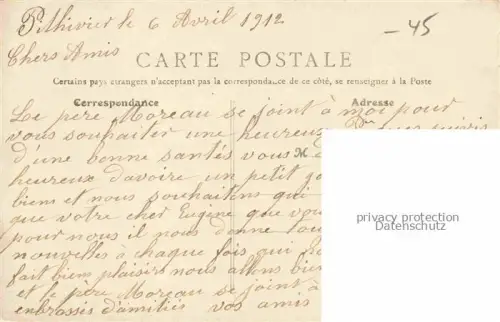 Pithivier le 6 Avril 1912
-45
Chers Amis
CARTE POSTALE
Certains pays étrangers n'acceptant pas la correspondance de ce côté, se renseigner à la Poste
Correspondance
Adresse
Le père Moreau se joint à moi pour
vous souhaiter une heureuse
d'une bonne santés vous
M
heureux d'avoire un petit
biens et nous souhaitons qui
que votre cher Eugène que vou
privacy protection
pour nous il nous donne
Datenschutz
nouvelles à chaque fois qui
fait biens plaisirs nous allons bien
et le père Moreau se joint à
enbrassés d'amitiés vos amis